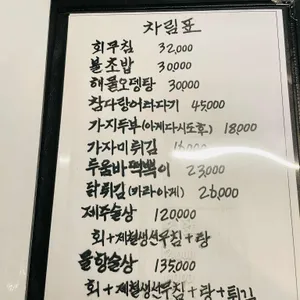 차림표
회무침 32,000
불초밥 30,000
해물오뎅탕 30,000
참다랑어타다끼 45,000
가지두부(아게다시도후) 18,000
가자미튀김
투움바떡볶이 23,000
닭튀김(가라아게) 26,000
제주술상 120,000
회+제철생선무침+탕
물항술상 135,000
회+제철생선무침+탕+튀김